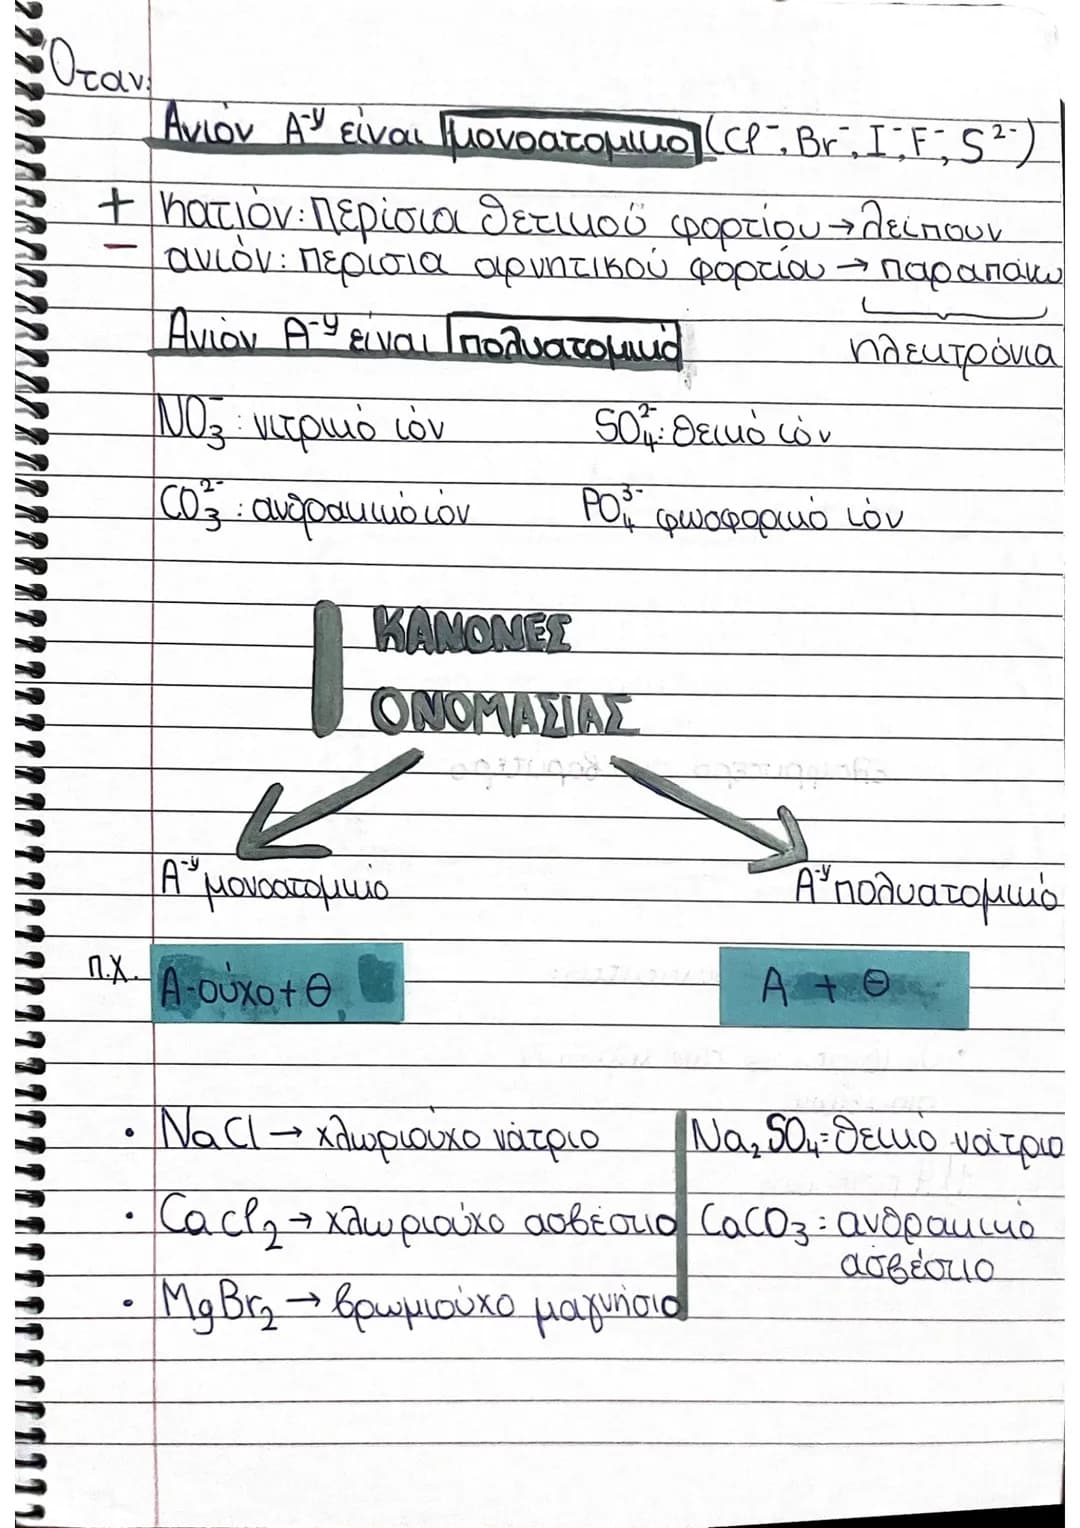 Όταν:
Ανιόν A⁻ʸ είναι μονοατομικό (Cl⁻, Br⁻, I⁻, F⁻, S²⁻)
+ κατιόν: περίσια θετικού φορτίου → λείπουν
− ανιόν: περίσια αρνητικού φορτίου → παραπάνω
ηλεκτρόνια
Ανιόν A⁻ʸ είναι πολυατομικό
NO₃⁻: νιτρικό ιόν SO₄²⁻: θειικό ιόν
CO₃²⁻: ανθρακικό ιόν PO₄³⁻ φωσφορικό ιόν
ΚΑΝΟΝΕΣ
ΟΝΟΜΑΣΙΑΣ
A⁻ʸ μονοατομικό A⁻ʸ πολυατομικό
π.χ. Α-ούχο + Θ Α + Θ
• NaCl → χλωριούχο νάτριο Na₂SO₄: θειικό νάτριο
• CaCl₂ → χλωριούχο ασβέστιο CaCO₃: ανθρακικό
ασβέστιο
• MgBr₂ → βρωμιούχο μαγνήσιο